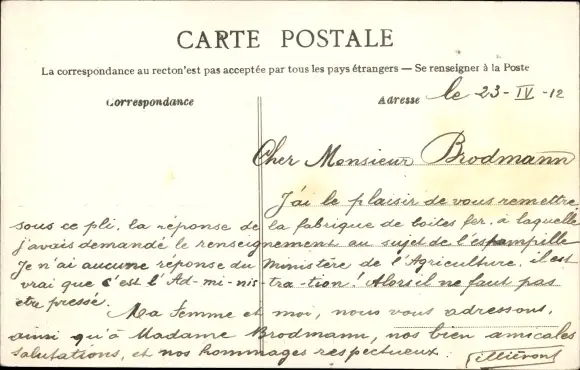 CARTE POSTALE
La correspondance au recto n'est pas acceptée par tous les pays étrangers — Se renseigner à la Poste
Correspondance
Adresse
le 23-IV-12
Cher Monsieur Brodmann
J'ai le plaisir de vous remettre,
sous ce pli, la réponse de la fabrique de boites fer, à laquelle
j'avais demandé le renseignement au sujet de l'estampille
Je n'ai aucune réponse du Ministère de l'Agriculture, il est
vrai que c'est l'Ad-mi-nis-tra-tion! Alors il ne faut pas
etre pressé.
Ma Femme et moi, nous vous adressons,
ainsi qu'à Madame Brodmann, nos bien amicales
salutations, et nos hommages respectueux.